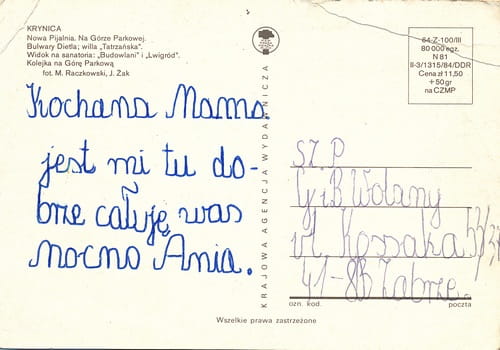 KRYNICA
Nowa Pijalnia. Na Górze Parkowej.
Bulwary Dietla; willa „Tatrzańska”.
Widok na sanatoria: „Budowlani” i „Lwigród”.
Kolejka na Górę Parkową
fot. M. Raczkowski, J. Żak
84-Z-100/III
80 000 egz.
N 81
II-3/1315/84/DDR
Cena zł 11,50
+ 50 gr
na CZMP
Kochana Mamo.
jest mi tu do-
brze całuję was
mocno Ania.
KRAJOWA AGENCJA WYDAWNICZA
SZ. P
G i R Wolany
ul. Kossaka
41-86 Zabrze.
ozn. kod. poczta
Wszelkie prawa zastrzeżone